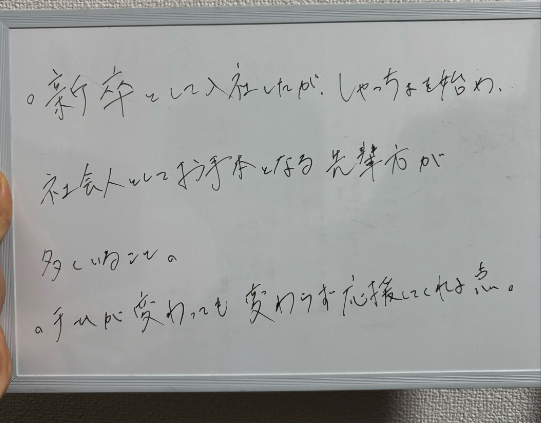 。新卒として入社したが、しゃっちょを始め、
社会人としてお手本となる先輩方が
多くいること。
。チームが変わっても変わらず応援してくれる点。